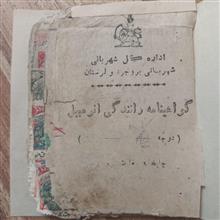 اداره کل شهربانی
شهربانی بروجرد و لرستان
گواهینامه رانندگی اتومبیل
( درجه )